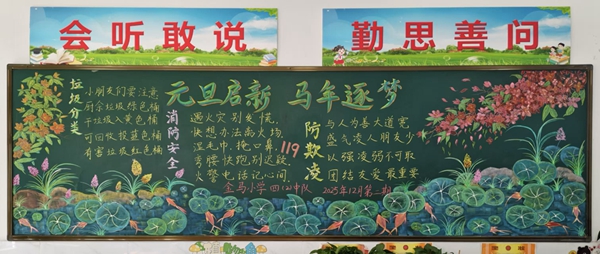 会听敢说
勤思善问
元旦启新 马年逐梦
垃圾分类
小朋友们要注意
厨余垃圾绿色桶
干垃圾入黄色桶
可回收投蓝色桶
有害垃圾红色桶
消防安全
遇火灾别发慌，
快想办法离火场，
湿毛巾，掩口鼻，
弯腰快跑别迟疑，
火警电话记心间，
119
防欺凌
与人为善大道宽
盛气凌人朋友少
以强凌弱不可取
团结友爱最重要
金马小学四(2)中队 2025年12月第二期